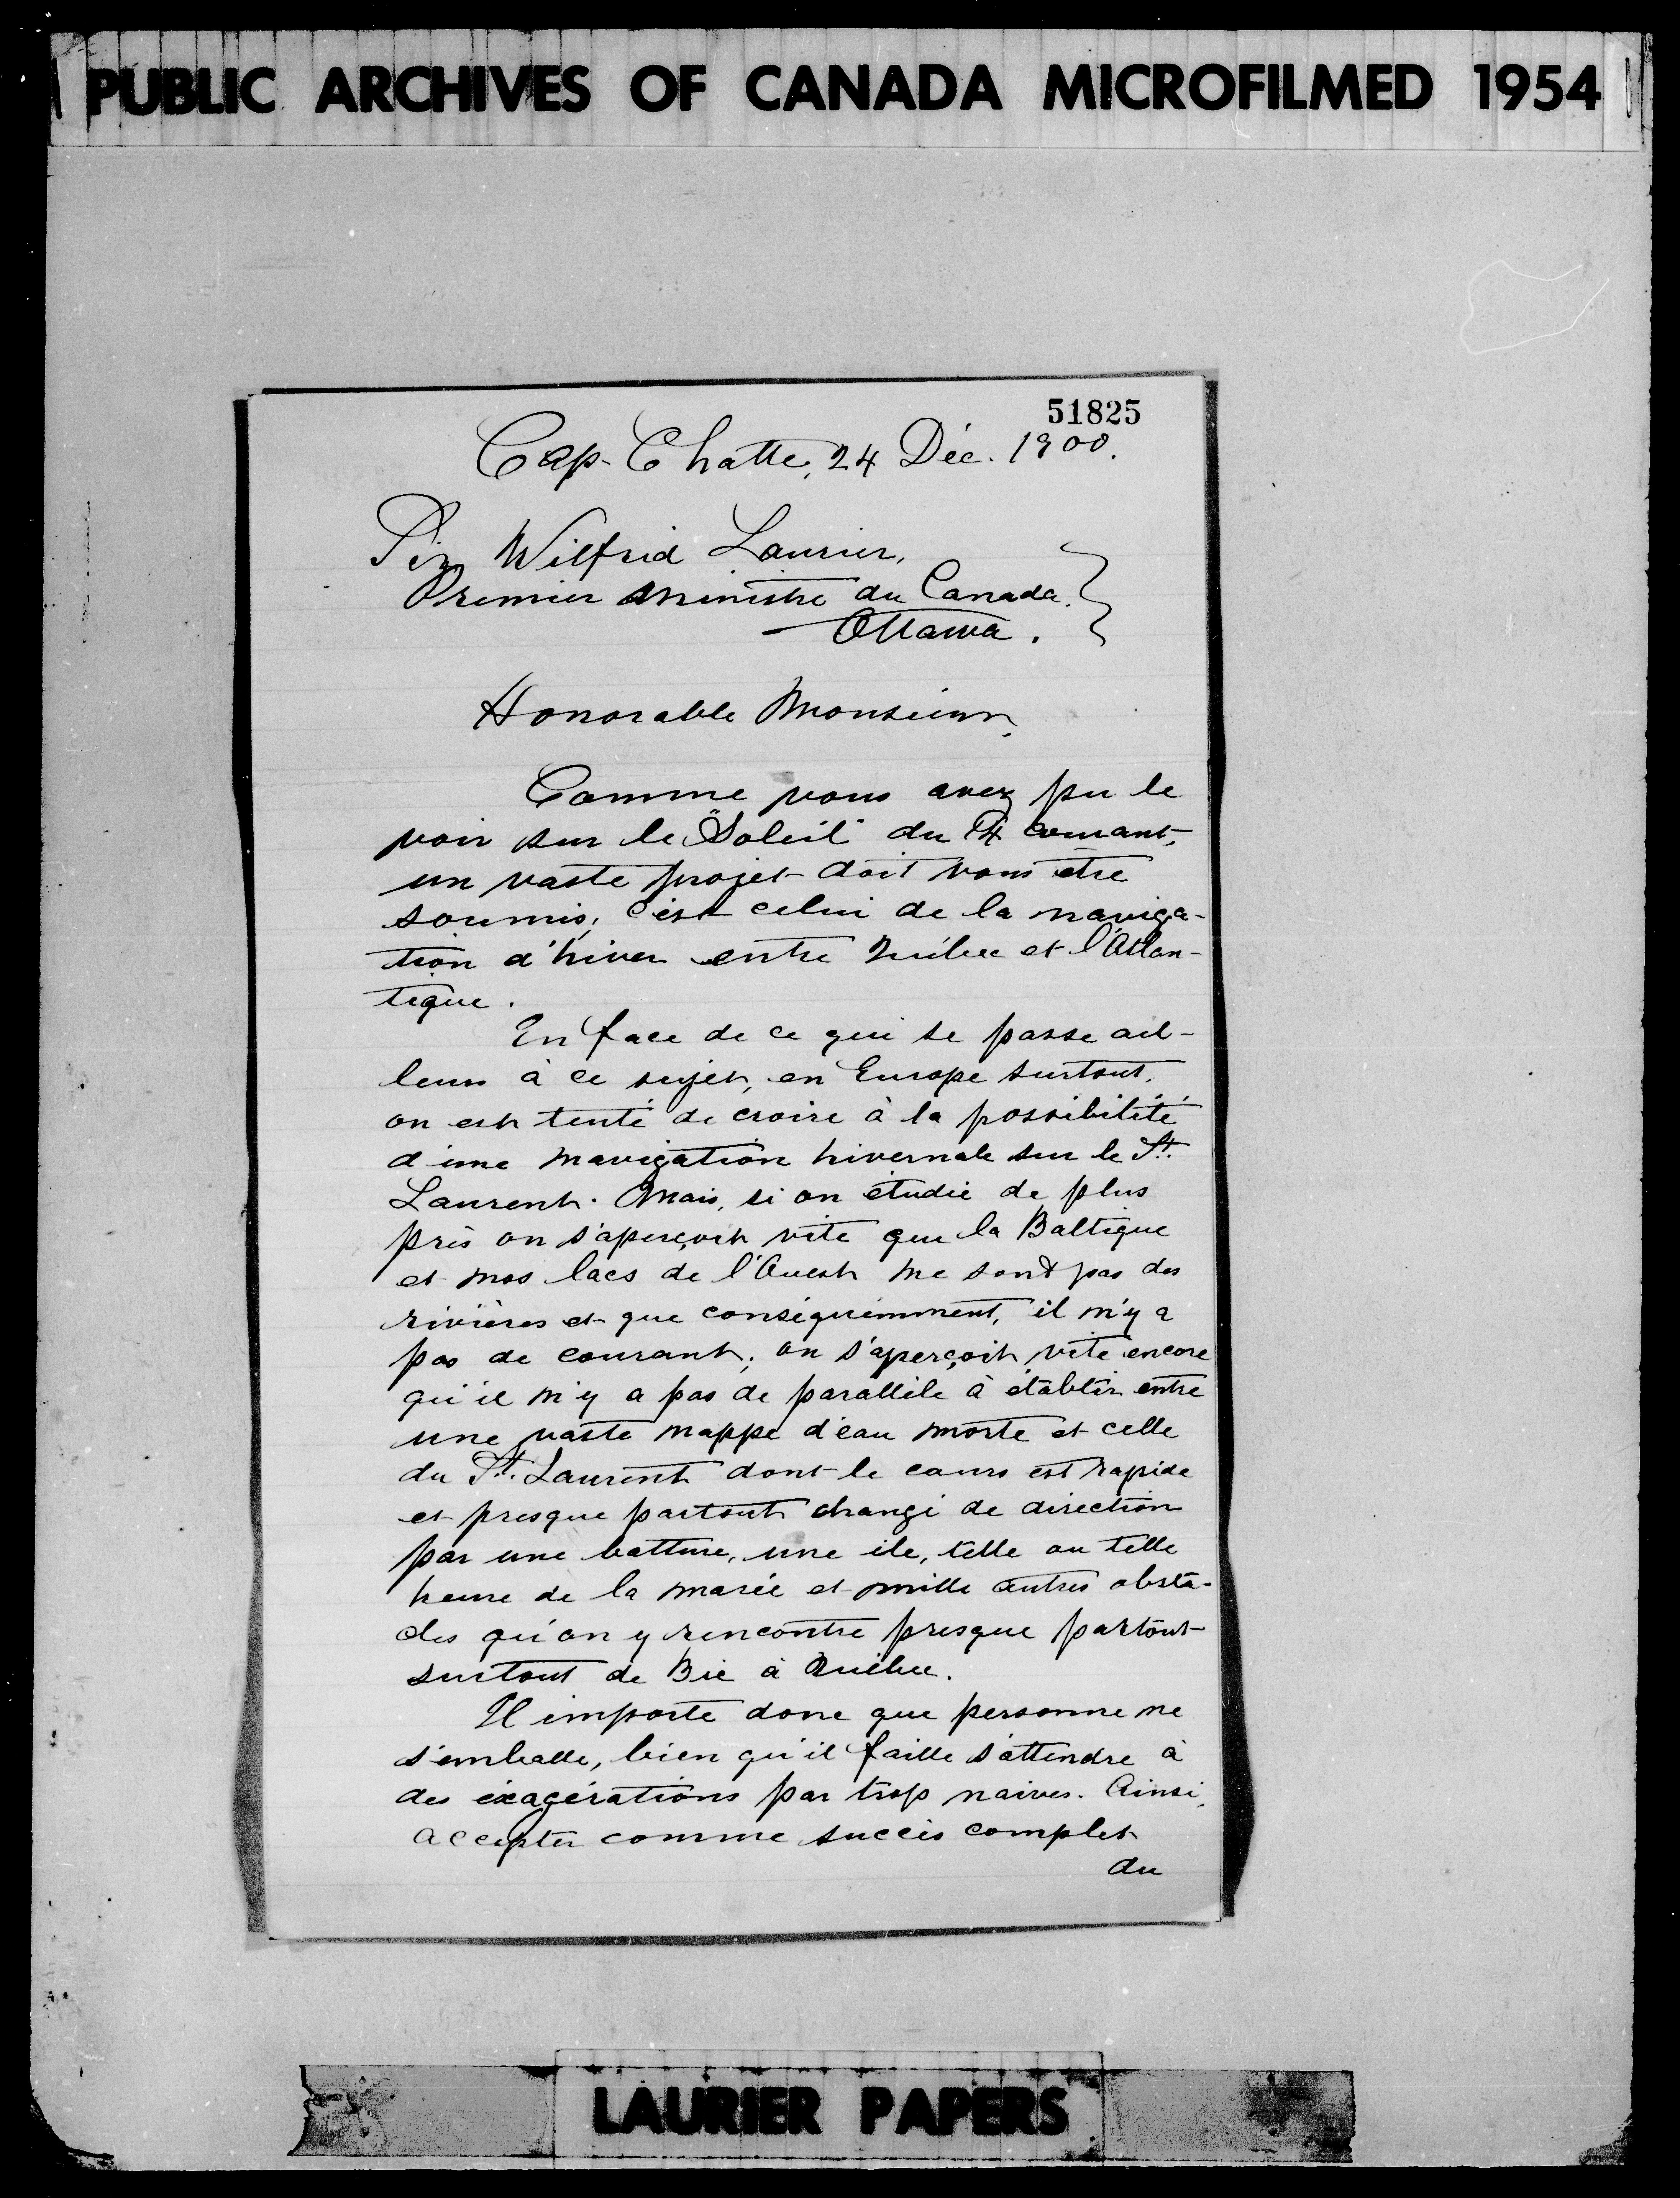 PUBLIC ARCHIVES OF CANADA MICROFILMED 1954
51825
Cap-Chatte, 24 Déc. 1900.
Sir Wilfrid Laurier,
Premier Ministre du Canada.
Ottawa.
Honorable Monsieur,
Comme vous avez pu le
voir sur le "Soleil" du courant,
un vaste projet doit vous être
soumis; c'est celui de la naviga-
tion d'hiver entre Québec et l'Atlan-
tique.
En face de ce qui se passe ail-
leurs à ce sujet, en Europe surtout,
on est tenté de croire à la possibilité
d'une navigation hivernale sur le St.
Laurent. Mais, si on étudie de plus
près on s'aperçoit vite que la Baltique
et nos lacs de l'Ouest ne sont pas des
rivières et que conséquemment, il n'y a
pas de courant; on s'aperçoit vite encore
qu'il n'y a pas de parallèle à établir entre
une vaste nappe d'eau morte et celle
du St. Laurent dont le cours est rapide
et presque partout changé de direction
par une batture, une île, telle ou telle
heure de la marée et mille autres obsta-
cles qu'on y rencontre presque partout
surtout de Bic à Québec.
Il importe donc que personne ne
s'emballe, bien qu'il faille s'attendre à
des éxagérations par trop naives. Ainsi,
accepter comme succès complet
du
LAURIER PAPERS